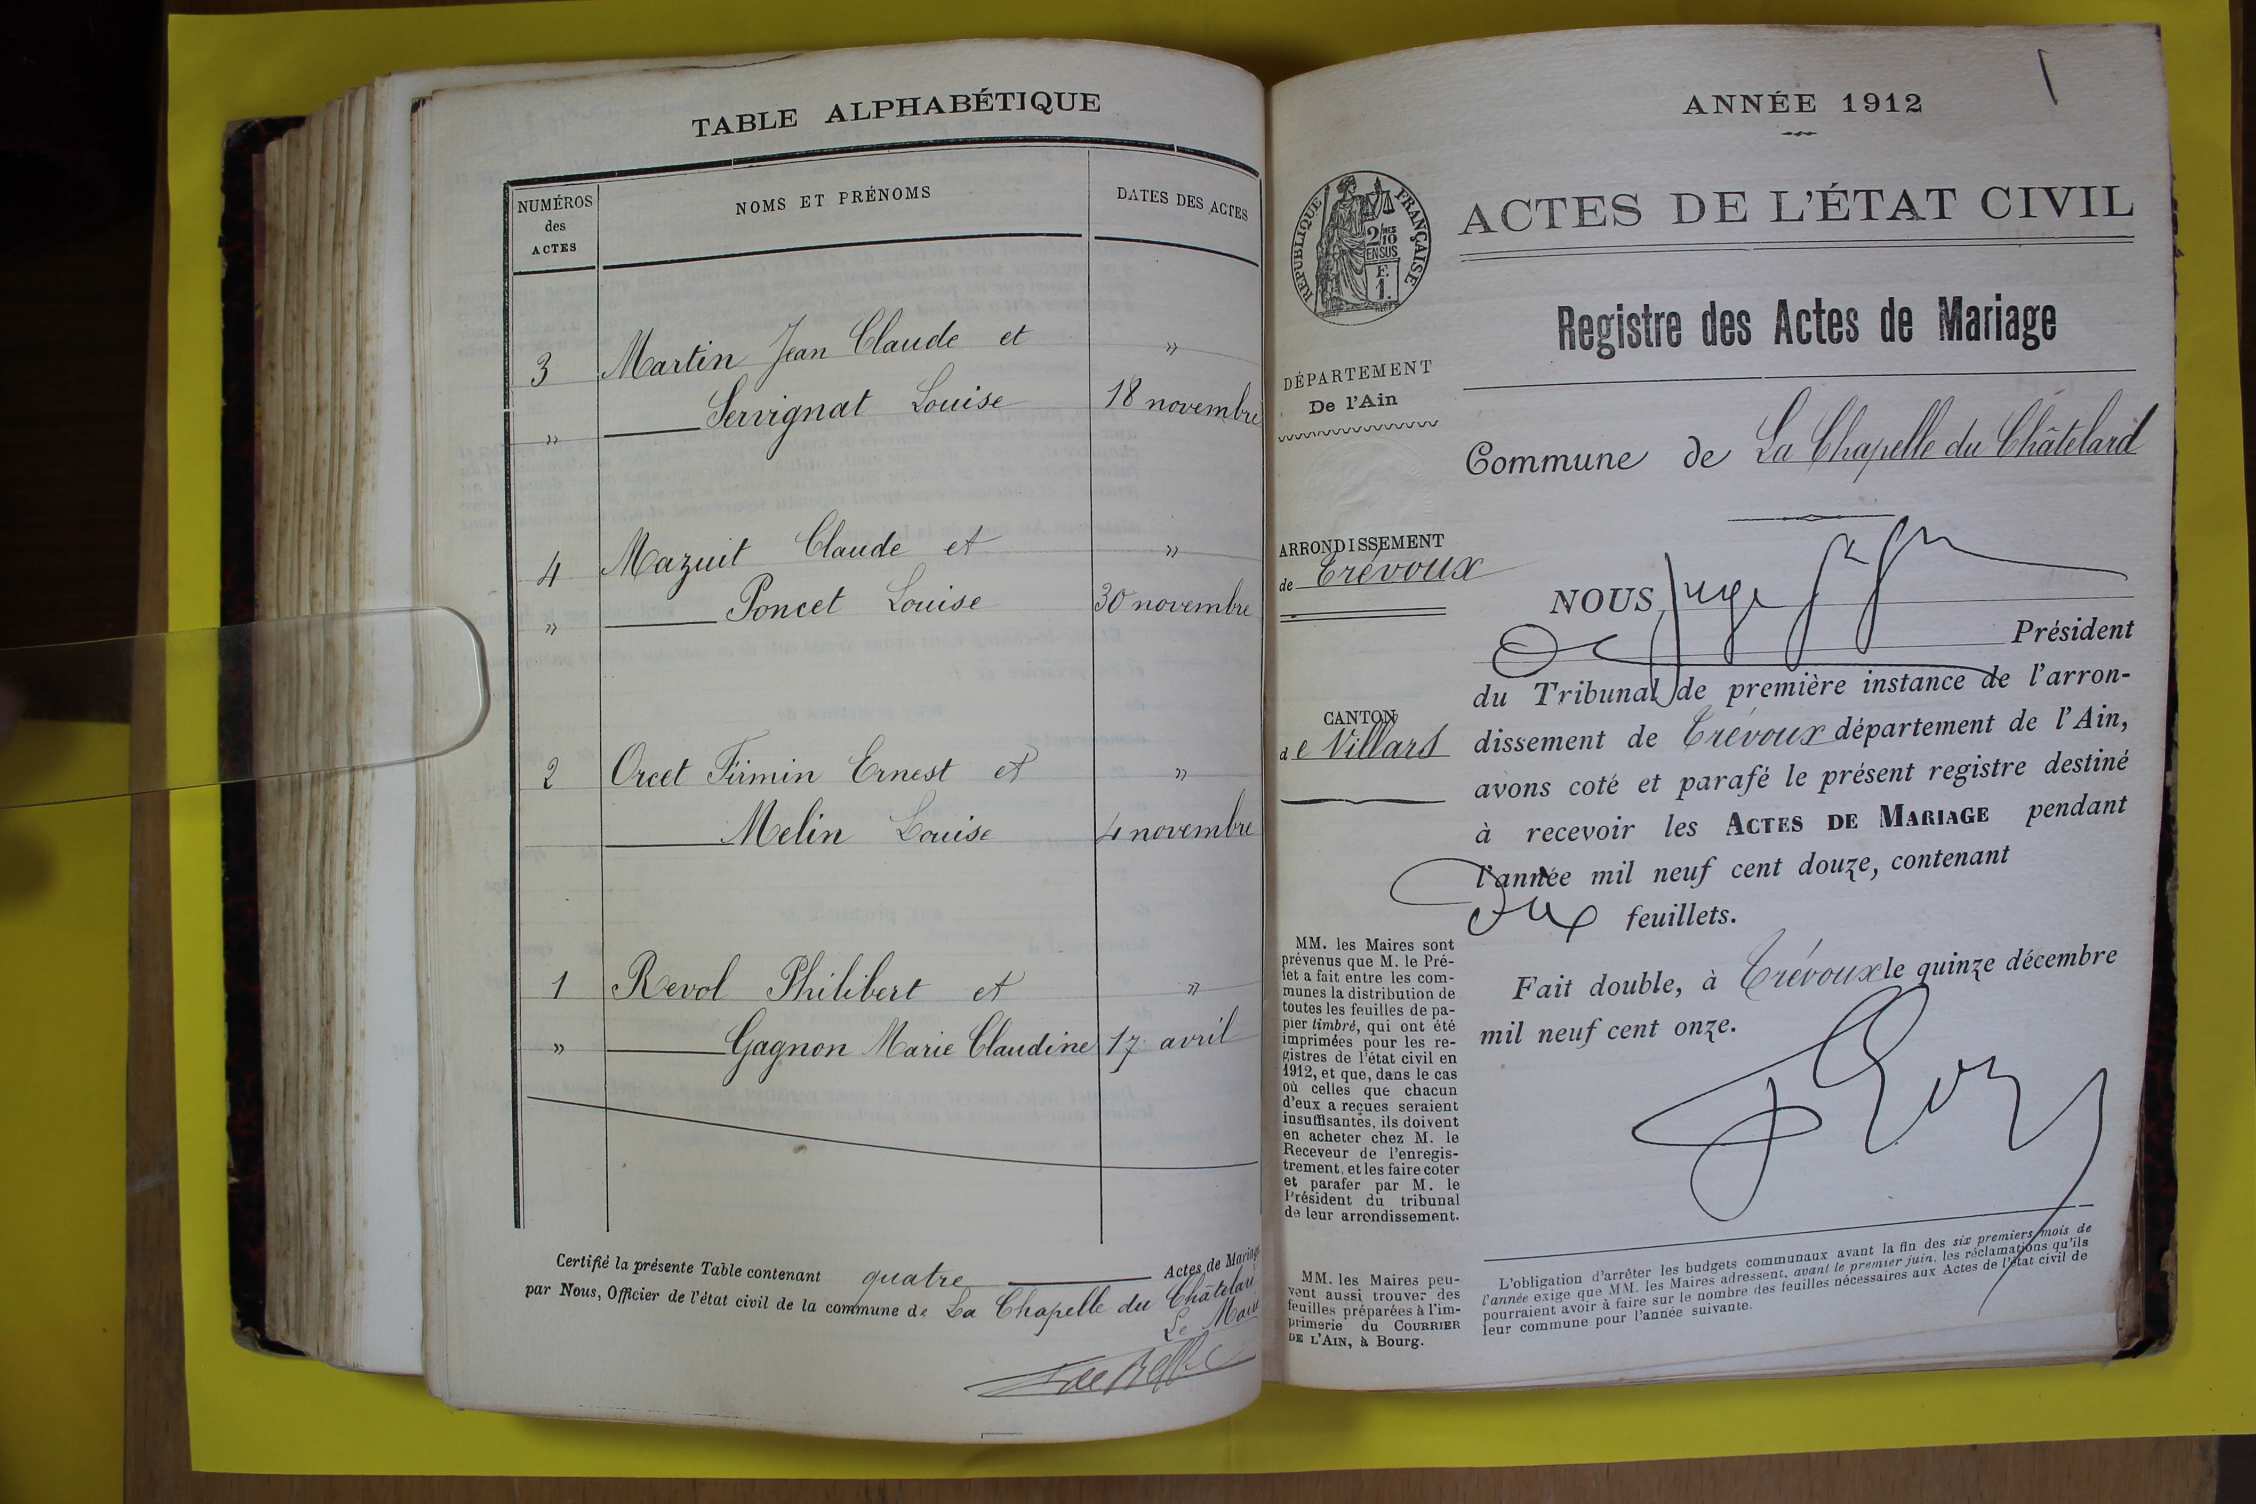 TABLE ALPHABÉTIQUE
NUMÉROS
des
ACTES
NOMS ET PRÉNOMS
DATES DES ACTES
3 Martin Jean Claude et »
» Servignat Louise 18 novembre
4 Mazuit Claude et »
» Poncet Louise 30 novembre
2 Orcet Firmin Ernest et »
Melin Louise 4 novembre
1 Revol Philibert et »
» Gagnon Marie Claudine 17 avril
Certifié la présente Table contenant quatre Actes de Mariage
par Nous, Officier de l'état civil de la commune de La Chapelle du Châtelard
Le Maire
ANNÉE 1912
ACTES DE L'ÉTAT CIVIL
RÉPUBLIQUE FRANÇAISE
2/10
EN SUS
F.
1.
Registre des Actes de Mariage
DÉPARTEMENT
De l'Ain
Commune de La Chapelle du Châtelard
ARRONDISSEMENT
de Trévoux
CANTON
de Villars
NOUS, juge
Président
du Tribunal de première instance de l'arron-
dissement de Trévoux département de l'Ain,
avons coté et parafé le présent registre destiné
à recevoir les ACTES DE MARIAGE pendant
l'année mil neuf cent douze, contenant
feuillets.
Fait double, à Trévoux le quinze décembre
mil neuf cent onze.
MM. les Maires sont
prévenus que M. le Pré-
fet a fait entre les com-
munes la distribution de
toutes les feuilles de pa-
pier timbré, qui ont été
imprimées pour les re-
gistres de l'état civil en
1912, et que, dans le cas
où celles que chacun
d'eux a reçues seraient
insuffisantes, ils doivent
en acheter chez M. le
Receveur de l'enregis-
trement, et les faire coter
et parafer par M. le
Président du tribunal
de leur arrondissement.
MM. les Maires peu-
vent aussi trouver des
feuilles préparées à l'im-
primerie du COURRIER
DE L'AIN, à Bourg.
L'obligation d'arrêter les budgets communaux avant la fin des six premiers mois de
l'année exige que MM. les Maires adressent, avant le premier juin, les réclamations qu'ils
pourraient avoir à faire sur le nombre des feuilles nécessaires aux Actes de l'état civil de
leur commune pour l'année suivante.